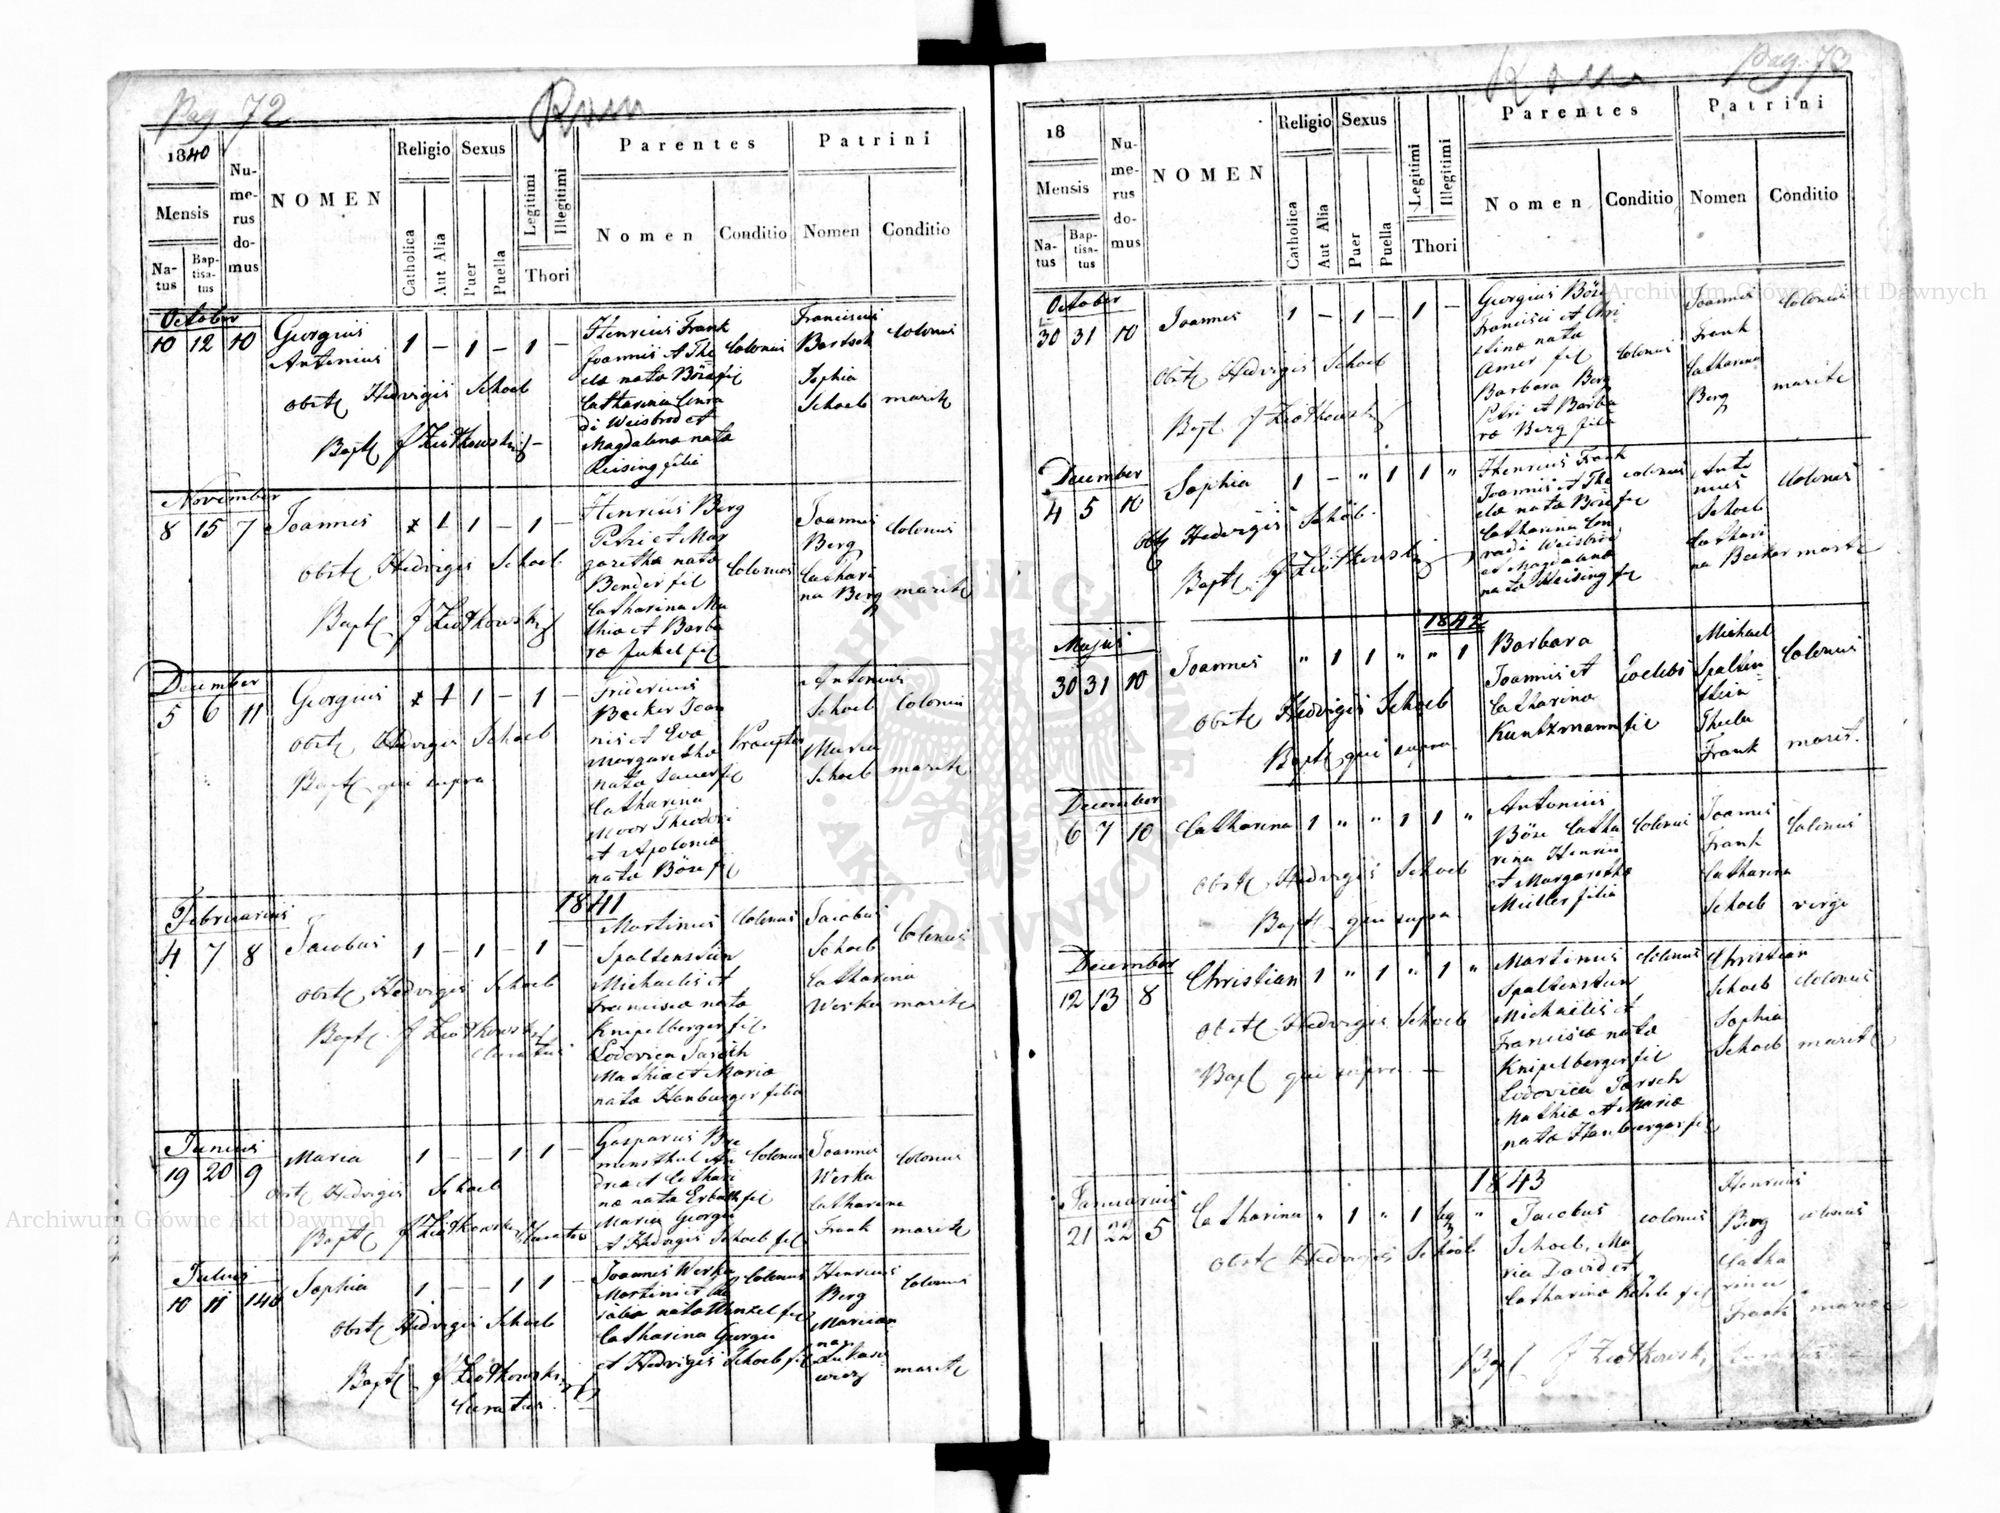 Pag 72
Rosen
1840
Mensis
Na-
tus
Bap-
tisa-
tus
Nu-
me-
rus
do-
mus
NOMEN
Religio
Catholica
Aut Alia
Sexus
Puer
Puella
Legitimi
Illegitimi
Thori
Parentes
Nomen
Conditio
Patrini
Nomen
Conditio
October
10 12 10 Georgius 1 – 1 – 1 –
Antonius
Obste Hedvigis Schoeb
Bapt J Ziółkowski
Henricus Frank
Joannis et The
cla nata Böse fil
Catharina Conra
di Weisbrod et
Magdalena nata
Reising filia
Colonus
Franciscus
Bartsch
Sophia
Schoeb
Colonus
marite
November
8 15 7 Joannes 1 1 – 1 –
Obste Hedvigis Schoeb
Bapt J Ziółkowski
Henricus Berg
Petri et Mar
garetha nata
Bender fil
Catharina Ma
thia et Barba
ra Junkel fil
Colonus
Joannes
Berg
Cathari
na Berg
Colonus
marite
December
5 6 11 Georgius 1 1 – 1 –
Obste Hedvigis Schoeb
Bapt qui supra
Fridericus
Becker Joan
nis et Eva
Margaretha
nata Sauer fil
Catharina
Moor Theodori
et Apolonia
nata Böse fil
Praeceptor
Antonius
Schoeb
Maria
Schoeb
Colonus
marite
1841
Februarius
4 7 8 Jacobus 1 – 1 – 1 –
Obste Hedvigis Schoeb
Bapt J Ziółkowski
Curatus
Martinus
Spaltenstein
Michaelis et
Francisca nata
Knipelberger fil.
Lodovica Jarsch
Mathia et Maria
nata Hanburger filia
Colonus
Jacobus
Schoeb
Catharina
Werka
Colonus
marite
Junius
19 20 9 Maria 1 – – 1 1 –
Obste Hedvigis Schoeb
Bapt J Ziółkowski Curatus
Gasparus
Cathari
na nata
Maria Georgii
et Hedvigis Schoeb fil
Colonus
Joannes
Werka
Catharina
Frank
Colonus
marite
Julius
10 11 Sophia 1 – – 1 1 –
Obste Hedvigis Schoeb
Bapt J Ziółkowski
Curatus
Joannes Werka
Martini et
nata Wenzel fil
Catharina Georgii
et Hedvigis Schoeb fil
Colonus
Henricus
Berg
Marian
na
Łukasie
wicz
Colonus
marite
Pag. 73
Rosen
18
Mensis
Na-
tus
Bap-
tisa-
tus
Nu-
me-
rus
do-
mus
NOMEN
Religio
Catholica
Aut Alia
Sexus
Puer
Puella
Legitimi
Illegitimi
Thori
Parentes
Nomen
Conditio
Patrini
Nomen
Conditio
October
30 31 10 Joannes 1 – 1 – 1 –
Obste Hedvigis Schoeb
Bapt. J Ziółkowski
Georgius Böse
Francisci et Chri
stina nata
Amer fil
Barbara Berg
Petri et Barba
ra Berg filia
Colonus
Joannes
Frank
Catharina
Berg
Colonus
marite
December
4 5 10 Sophia 1 – " 1 1 "
Obste Hedvigis Schöb
Bapt J Ziółkowski
Henricus Frank
Joannis et The
cla nata Böse fil
Catharina Con
radi Weisbrod
et Magdalena
nata Weising fil
colonus
Anto
nius
Schoeb
Cathari
na Becker
Colonus
marite
1842
Majus
30 31 10 Joannes " 1 1 " " 1
Obste Hedvigis Schoeb
Bapt qui supra
Barbara
Joannis et
Catharina
Kuntzmann fil
Coelebs
Michael
Spalten
stein
Thecla
Frank
Colonus
marit.
December
6 7 10 Catharina 1 " " 1 1 "
Obste Hedvigis Schoeb
Bapt qui supra
Antonius
Böse Catha
rina Henrici
et Margaretha
Müller filia
Colonus
Joannes
Frank
Catharina
Schoeb
Colonus
virgo
December
12 13 8 Christian 1 " 1 " 1 "
Obste Hedvigis Schoeb
Bapt qui supra
Martinus
Spaltenstein
Michaelis et
Francisca nata
Knipelberger fil
Lodovica Jarsch
Mathia et Maria
nata Hanburger fil
colonus
Christian
Schoeb
Sophia
Schoeb
Colonus
marite
1843
Januarius
21 22 5 Catharina " 1 " 1 leg "
Obste Hedvigis Schöb
Jacobus
Schoeb, Ma
ria David et
Catharina Köhle fil
colonus
Henricus
Berg
Catha
rina
Frank
colonus
marite
Bapt J Ziółkowski Curatus
Archiwum Główne Akt Dawnych
Archiwum Główne Akt Dawnych
ARCHIWUM GŁÓWNE AKT DAWNYCH